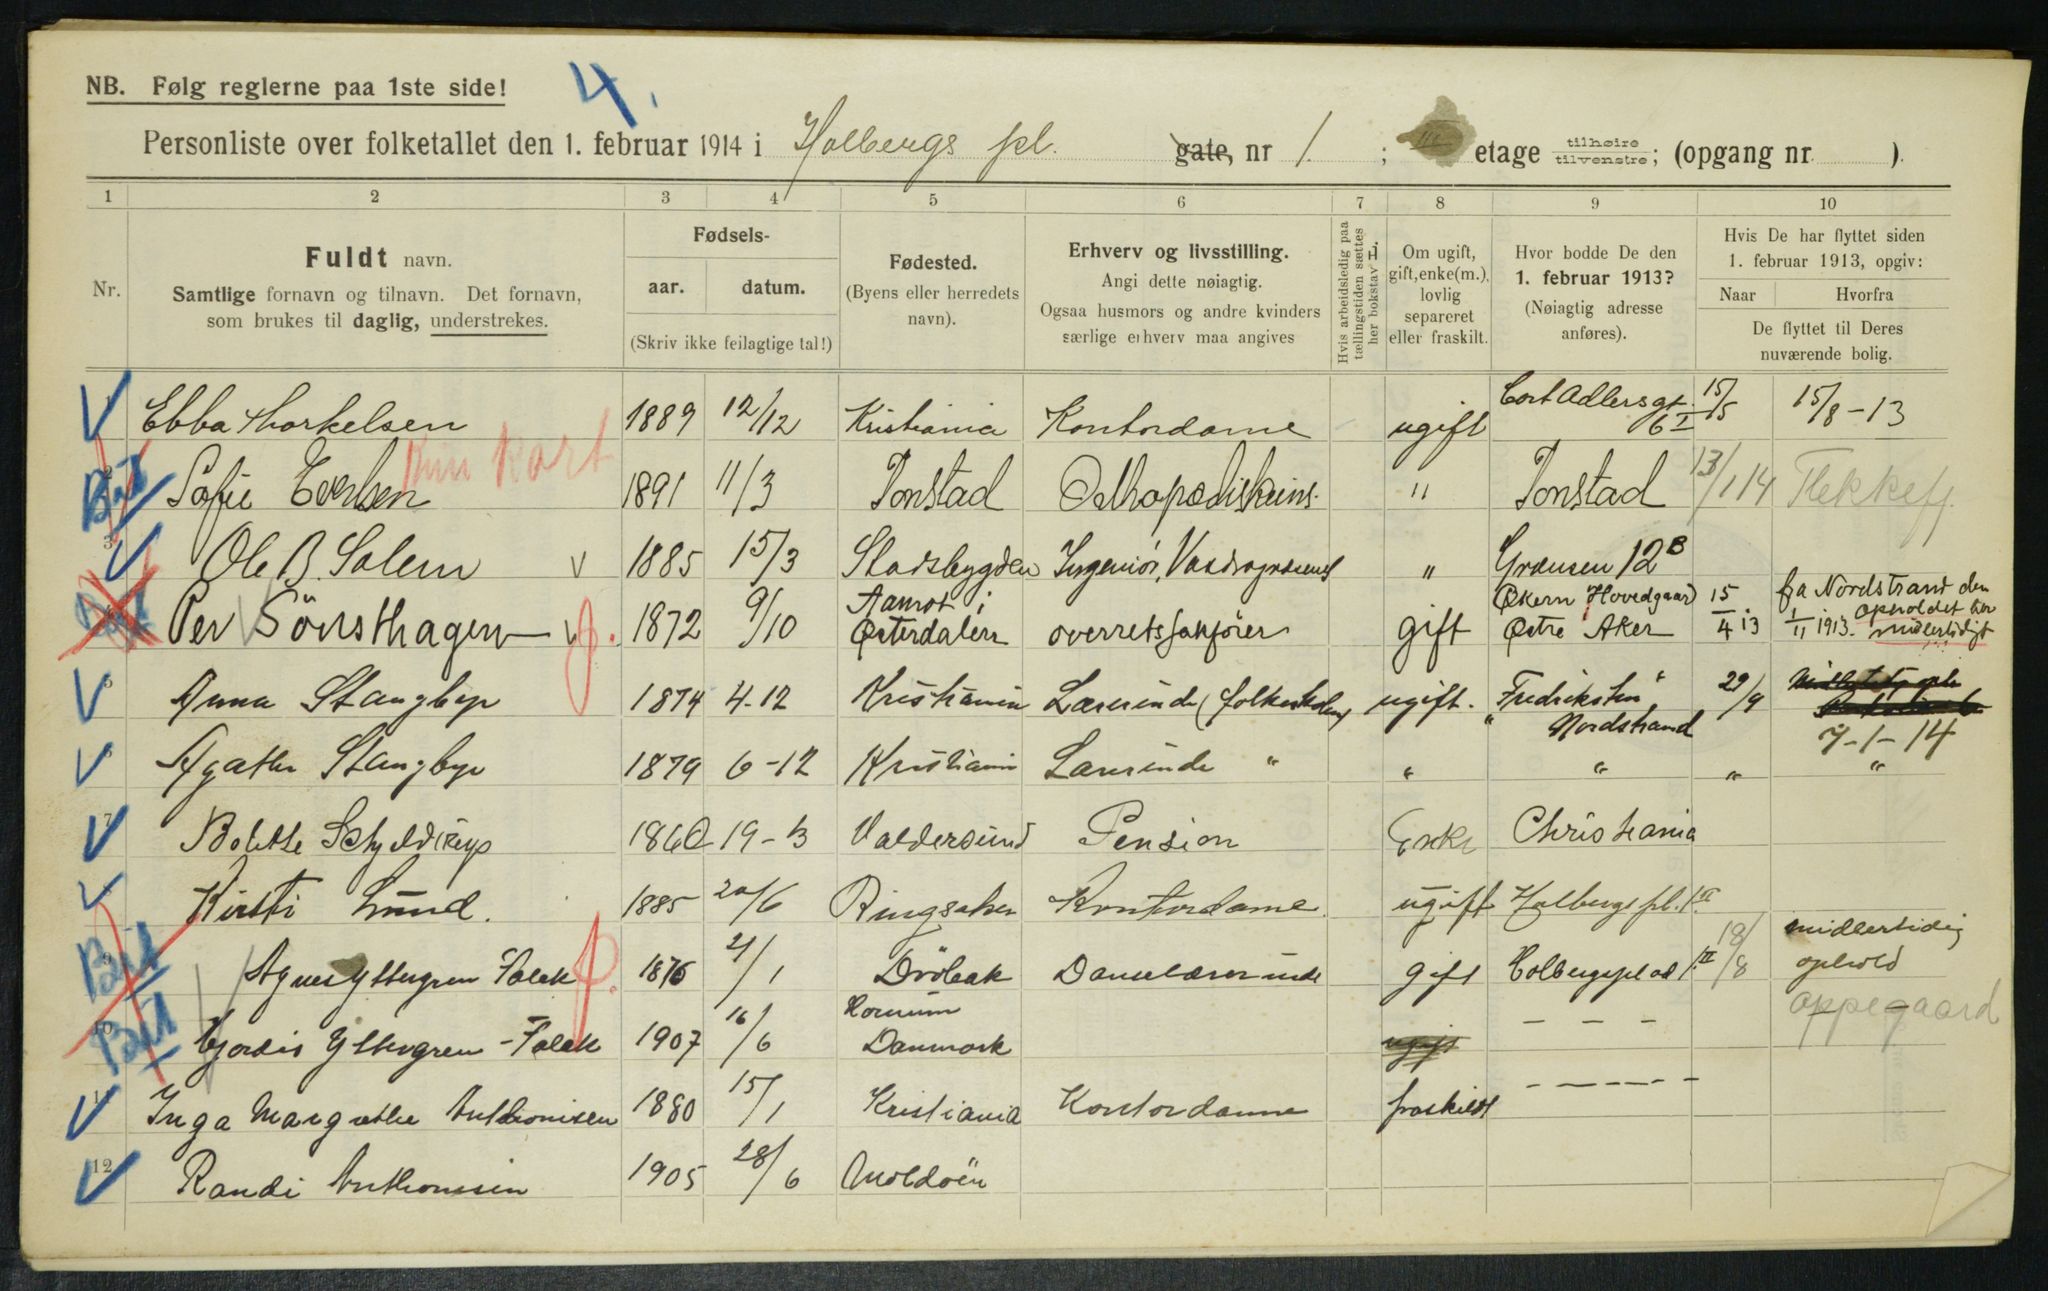 NB. Følg reglerne paa 1ste side!
4.
Personliste over folketallet den 1. februar 1914 i Holbergs pl. gate, nr 1. ; etage tilhøire tilvenstre; (opgang nr. ).
1 2 3 4 5 6 7 8 9 10
Nr.
Fuldt navn.
Samtlige fornavn og tilnavn. Det fornavn,
som brukes til daglig, understrekes.
Fødsels-
aar. datum.
(Skriv ikke feilagtige tal!)
Fødested.
(Byens eller herredets
navn).
Erhverv og livsstilling.
Angi dette nøiagtig.
Ogsaa husmors og andre kvinders
særlige erhverv maa angives
Hvis arbeidsledig paa
tællingstiden sættes
her bokstav L.
Om ugift,
gift, enke(m.),
lovlig
separeret
eller fraskilt.
Hvor bodde De den
1. februar 1913?
(Nøiagtig adresse
anføres).
Hvis De har flyttet siden
1. februar 1913, opgiv:
Naar Hvorfra
De flyttet til Deres
nuværende bolig.
Ebba Thorkelsen 1889 12/12 Kristiania Kontordame ugift Cort Adlersgt. 6 I 15/8-13
kort
2 Sofie 1891 11/3 Tonstad " Tonstad 13/1 14 Flekkefj.
3 Ole B. Solem v 1885 15/3 Stadsbygden Ingeniør, Vasdragvæsenet " Grænsen 12 B
Per Sönsthagen 1872 9/10 Aamot i Østerdalen overretssakfører gift Økern Hovedgaard Østre Aker 15/4 13 fra Nordstrand den 1/11 1913. opholdet her midlertidigt
5 Anna Stangbye 1874 4-12 Kristiania Lærerinde (folkeskolen) ugift. "Fredriksten" Nordstrand 29/9 7-1-14
6 Agathe Stangbye 1879 6-12 Kristiania Lærerinde " " " " "
7 Bolette Schjelderup 1860 19-3 Valdersund Pension Enke Christiania
Kirsti Lund. 1885 20/6 Ringsaker Kontordame ugift Holbergs pl. 1 II
9 Agnes Yttergren Falck 1876 /1 Dröbak Danselærerinde gift Holbergs plads 1 III 18/8 midlertidig ophold
10 Hjordis Yttergren-Falck 1907 16/6 Danmark ugift - - - Oppegaard
Inga Margrethe Anthonisen 1880 15/1 Kristiania Kontordame fraskildt - - - - -
12 Randi Anthonisen 1905 28/6 Moldöen